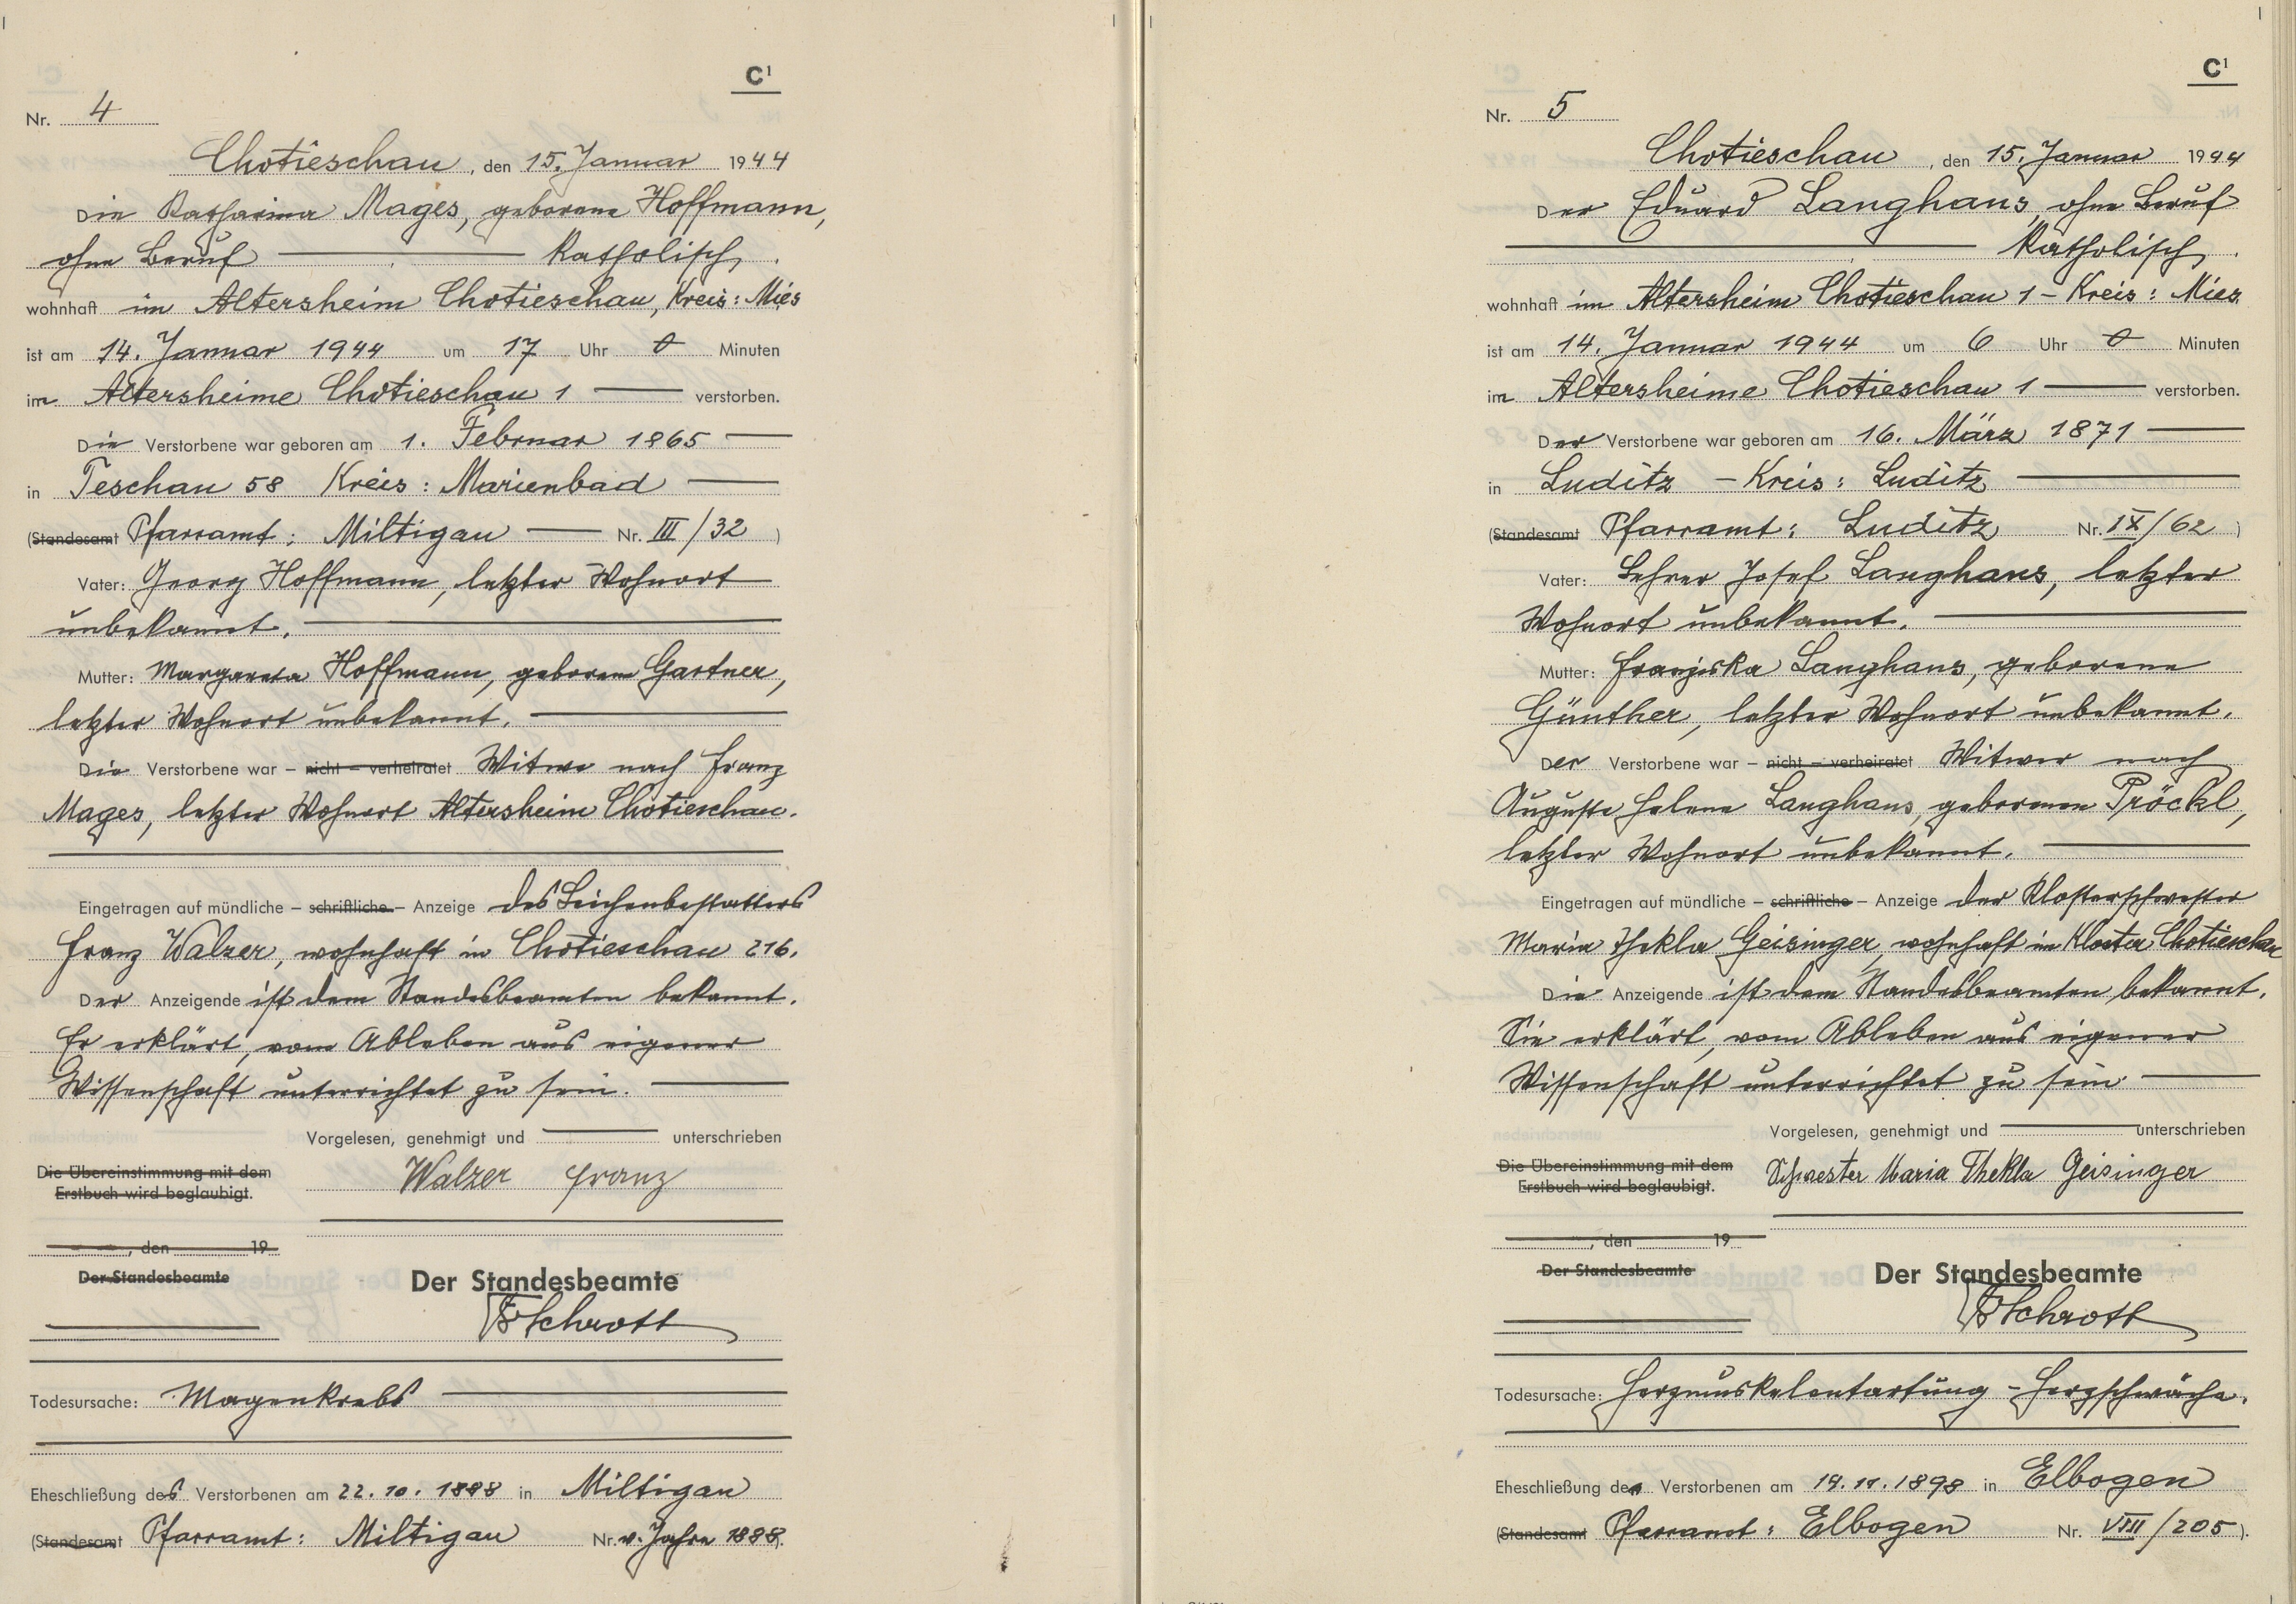 C¹
Nr. 4
Chotieschau, den 15. Januar 1944
Die Katharina Mages, geborene Hoffmann,
ohne Beruf — Katholisch.
wohnhaft im Altersheim Chotieschau, Kreis: Mies
ist am 14. Januar 1944 um 17 Uhr 0 Minuten
im Altersheime Chotieschau 1 — verstorben.
Die Verstorbene war geboren am 1. Februar 1865 —
in Teschau 58 Kreis: Marienbad —
(Standesamt Pfarramt: Miltigau — Nr. III/32)
Vater: Georg Hoffmann, letzter Wohnort
unbekannt. —
Mutter: Margareta Hoffmann, geborene Gartner,
letzter Wohnort unbekannt. —
Die Verstorbene war – nicht – verheiratet Witwe nach Franz
Mages, letzter Wohnort Altersheim Chotieschau.
Eingetragen auf mündliche – schriftliche – Anzeige des Leichenbestatters
Franz Walzer, wohnhaft in Chotieschau 216.
Der Anzeigende ist dem Standesbeamten bekannt.
Er erklärt, vom Ableben aus eigener
Wissenschaft unterrichtet zu sein. —
Vorgelesen, genehmigt und — unterschrieben
Die Übereinstimmung mit dem
Erstbuch wird beglaubigt.
Walzer Franz
, den 19
Der Standesbeamte
Der Standesbeamte
Schrott
Todesursache: Magenkrebs —
Eheschließung des Verstorbenen am 22.10.1888 in Miltigau
(Standesamt Pfarramt: Miltigau Nr. v. Jahre 1888).
C¹
Nr. 5
Chotieschau, den 15. Januar 1944
Der Eduard Langhans, ohne Beruf
— Katholisch.
wohnhaft im Altersheim Chotieschau 1 – Kreis: Mies.
ist am 14. Januar 1944 um 6 Uhr 0 Minuten
im Altersheime Chotieschau 1 — verstorben.
Der Verstorbene war geboren am 16. März 1871 —
in Luditz – Kreis: Luditz —
(Standesamt Pfarramt: Luditz Nr. IX/62)
Vater: Lehrer Josef Langhans, letzter
Wohnort unbekannt. —
Mutter: Franziska Langhans, geborene
Günther, letzter Wohnort unbekannt.
Der Verstorbene war – nicht – verheiratet Witwer nach
Auguste Helene Langhans, geborenen Pröckl,
letzter Wohnort unbekannt. —
Eingetragen auf mündliche – schriftliche – Anzeige der Klosterschwester
Maria Thekla Geisinger, wohnhaft im Kloster Chotieschau
Die Anzeigende ist dem Standesbeamten bekannt.
Sie erklärt, vom Ableben aus eigener
Wissenschaft unterrichtet zu sein —
Vorgelesen, genehmigt und — unterschrieben
Die Übereinstimmung mit dem
Erstbuch wird beglaubigt.
Schwester Maria Thekla Geisinger
, den 19
Der Standesbeamte
Der Standesbeamte
Schrott
Todesursache: Herzmuskelentartung – Herzschwäche.
Eheschließung des Verstorbenen am 19.11.1898 in Elbogen
(Standesamt Pfarramt: Elbogen Nr. VIII/205).